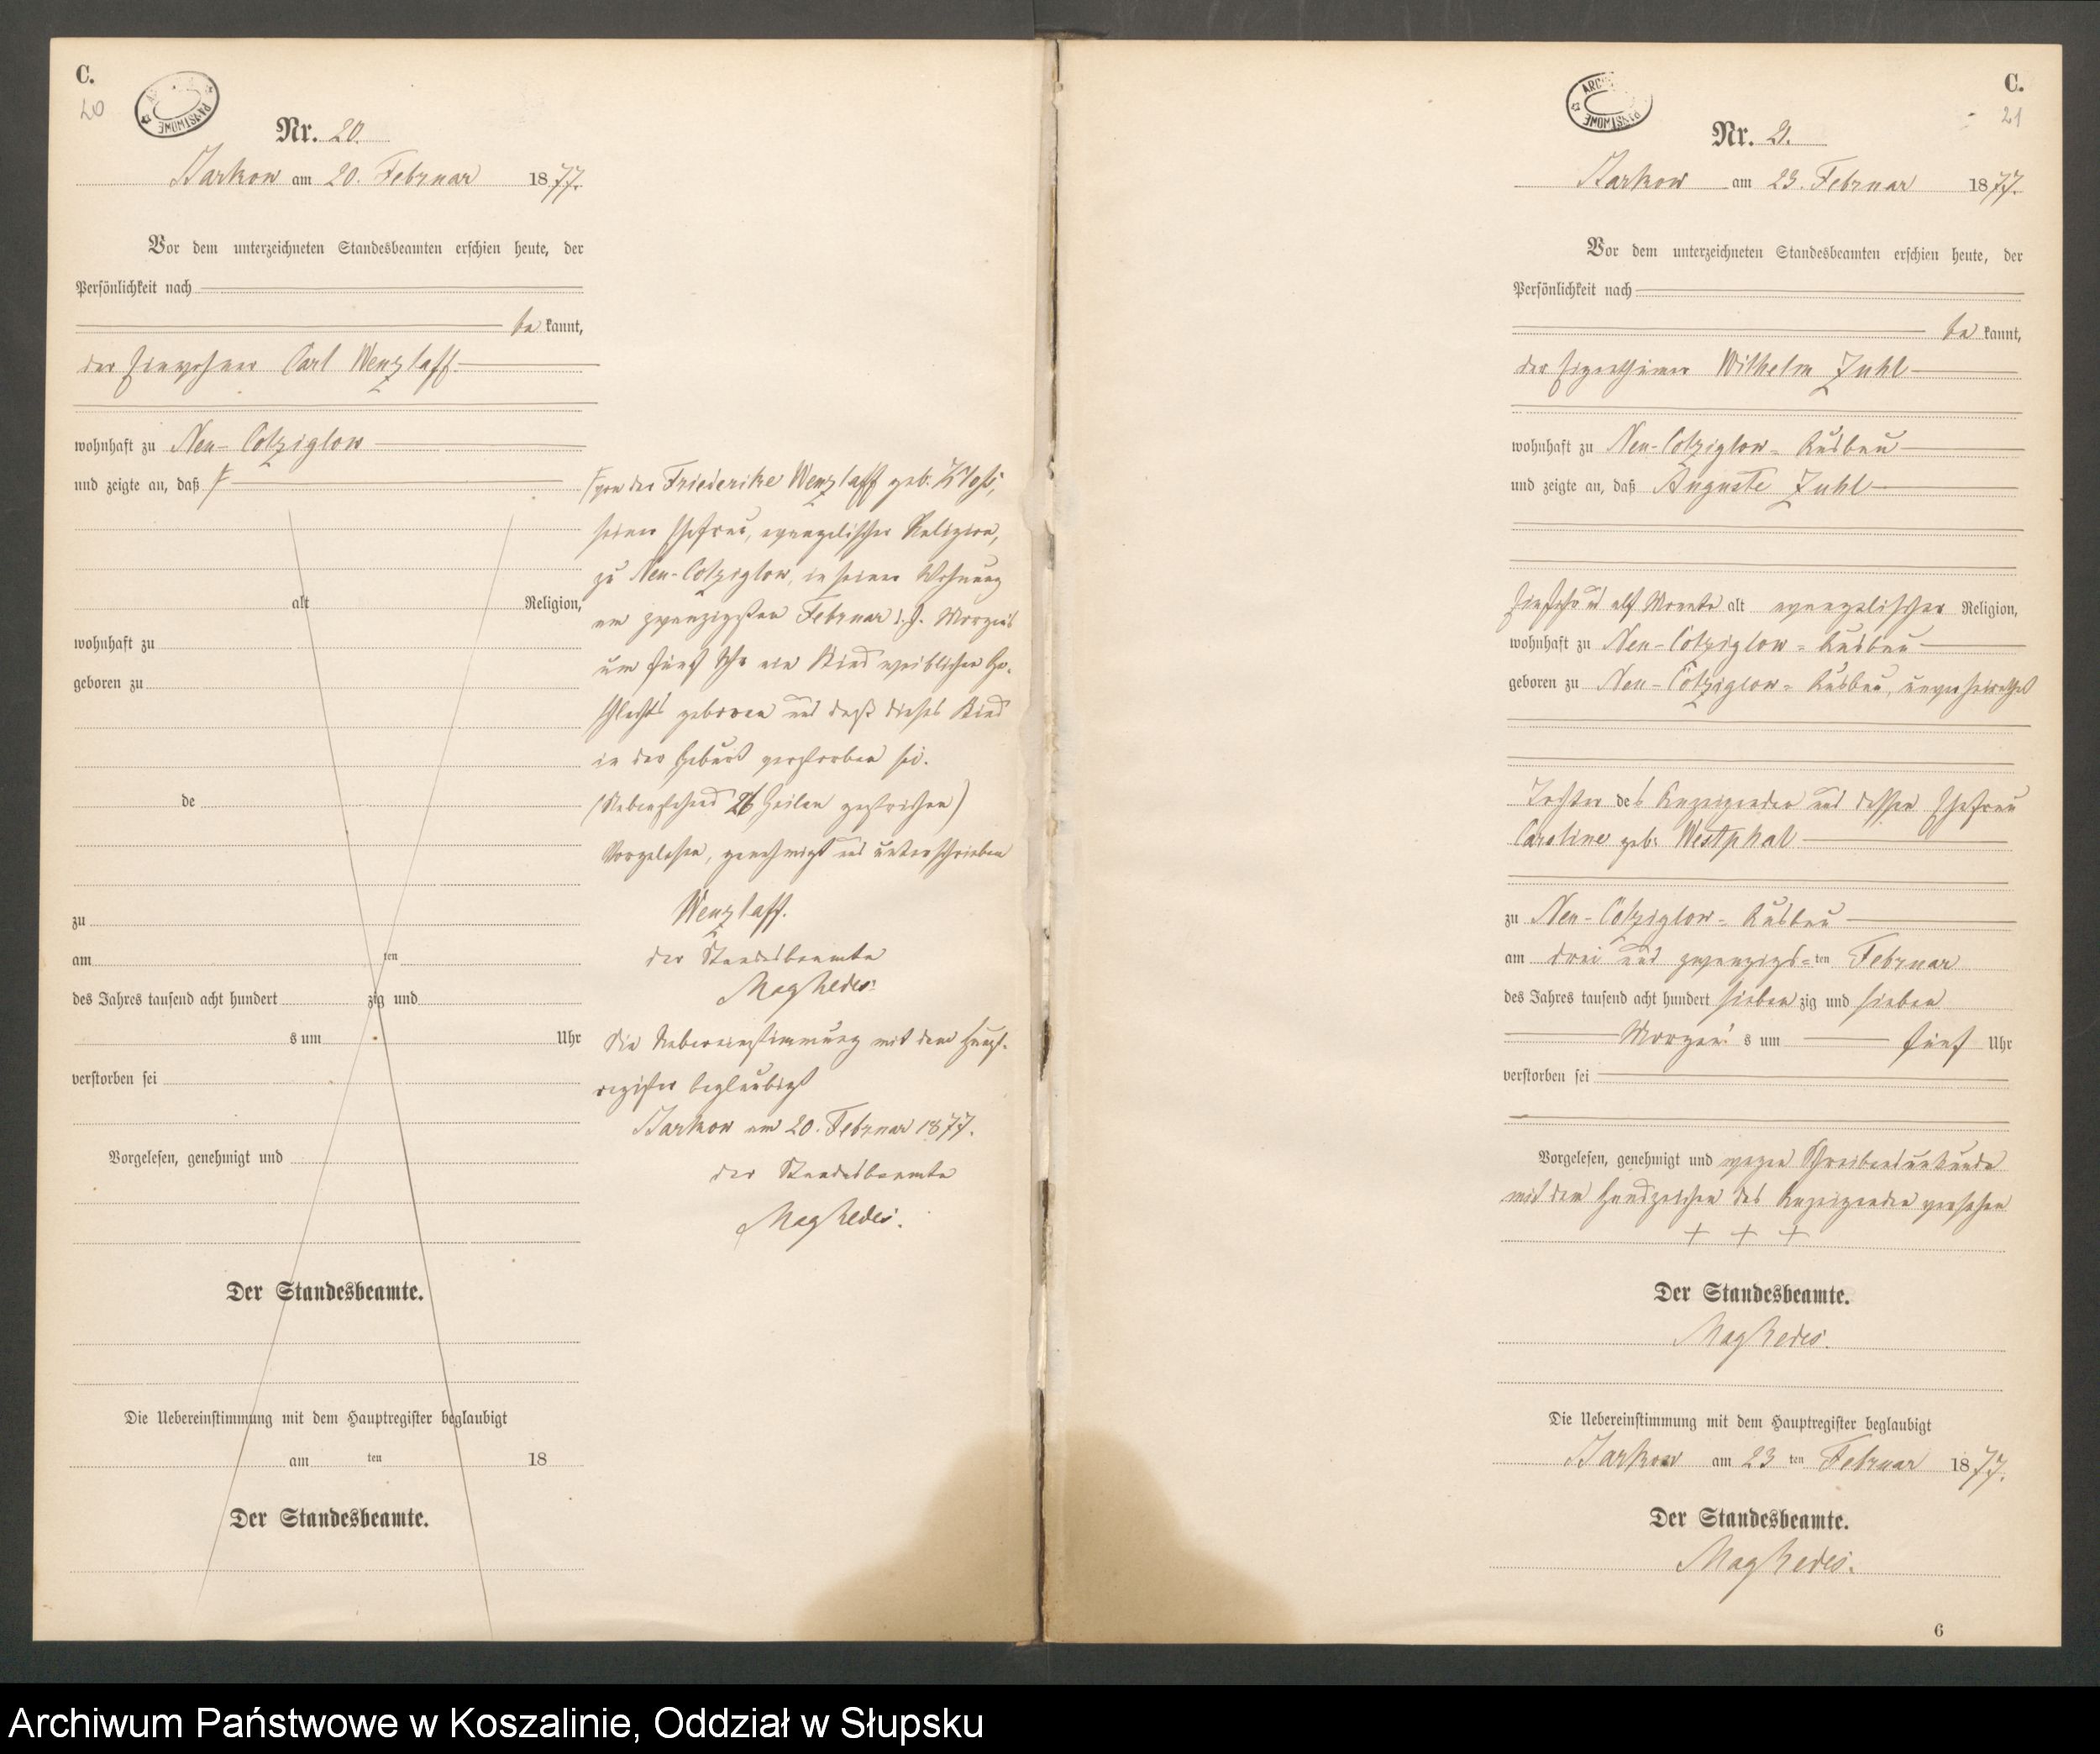 C.
20
Nr. 20.
am 20. Februar 1877.
Vor dem unterzeichneten Standesbeamten erschien heute, der
Persönlichkeit nach
be kannt,
der Einwohner Carl Wenzlaff
wohnhaft zu Neu-Colziglow
und zeigte an, daß
alt Religion,
wohnhaft zu
geboren zu
de
zu
am ten
des Jahres tausend acht hundert zig und
s um Uhr
verstorben sei
Vorgelesen, genehmigt und
Der Standesbeamte.
Die Uebereinstimmung mit dem Hauptregister beglaubigt
am ten 18
Der Standesbeamte.
von der Friederike Wenzlaff geb.
seiner Ehefrau, evangelischer Religion,
zu Neu-Colziglow, in seiner Wohnung
am zwanzigsten Februar d. J. Morgens
um fünf Uhr ein Kind weiblichen Ge-
schlechts geboren und daß dieses Kind
in der Geburt verstorben sei.
(Nebenstehend 26 Zeilen gestrichen)
Vorgelesen, genehmigt und unterschrieben
Wenzlaff.
der Standesbeamte
Die Uebereinstimmung mit dem Haupt-
register beglaubigt
am 20. Februar 1877.
der Standesbeamte
C.
21
Nr. 21.
am 23. Februar 1877.
Vor dem unterzeichneten Standesbeamten erschien heute, der
Persönlichkeit nach
be kannt,
der Eigenthümer Wilhelm Zuhl
wohnhaft zu Neu-Colziglow-Ausbau
und zeigte an, daß Auguste Zuhl
elf Monate alt evangelischer Religion,
wohnhaft zu Neu-Colziglow-Ausbau
geboren zu Neu-Colziglow-Ausbau, unverheirathet
Tochter des Anzeigenden und dessen Ehefrau
Caroline geb. Westphal
zu Neu-Colziglow-Ausbau
am drei und zwanzigs-ten Februar
des Jahres tausend acht hundert sieben zig und sieben
Morgen s um fünf Uhr
verstorben sei
Vorgelesen, genehmigt und wegen Schreibensunkunde
mit dem Handzeichen des Anzeigenden versehen
+ + +
Der Standesbeamte.
Die Uebereinstimmung mit dem Hauptregister beglaubigt
am 23 ten Februar 1877.
Der Standesbeamte.
6
Archiwum Państwowe w Koszalinie, Oddział w Słupsku